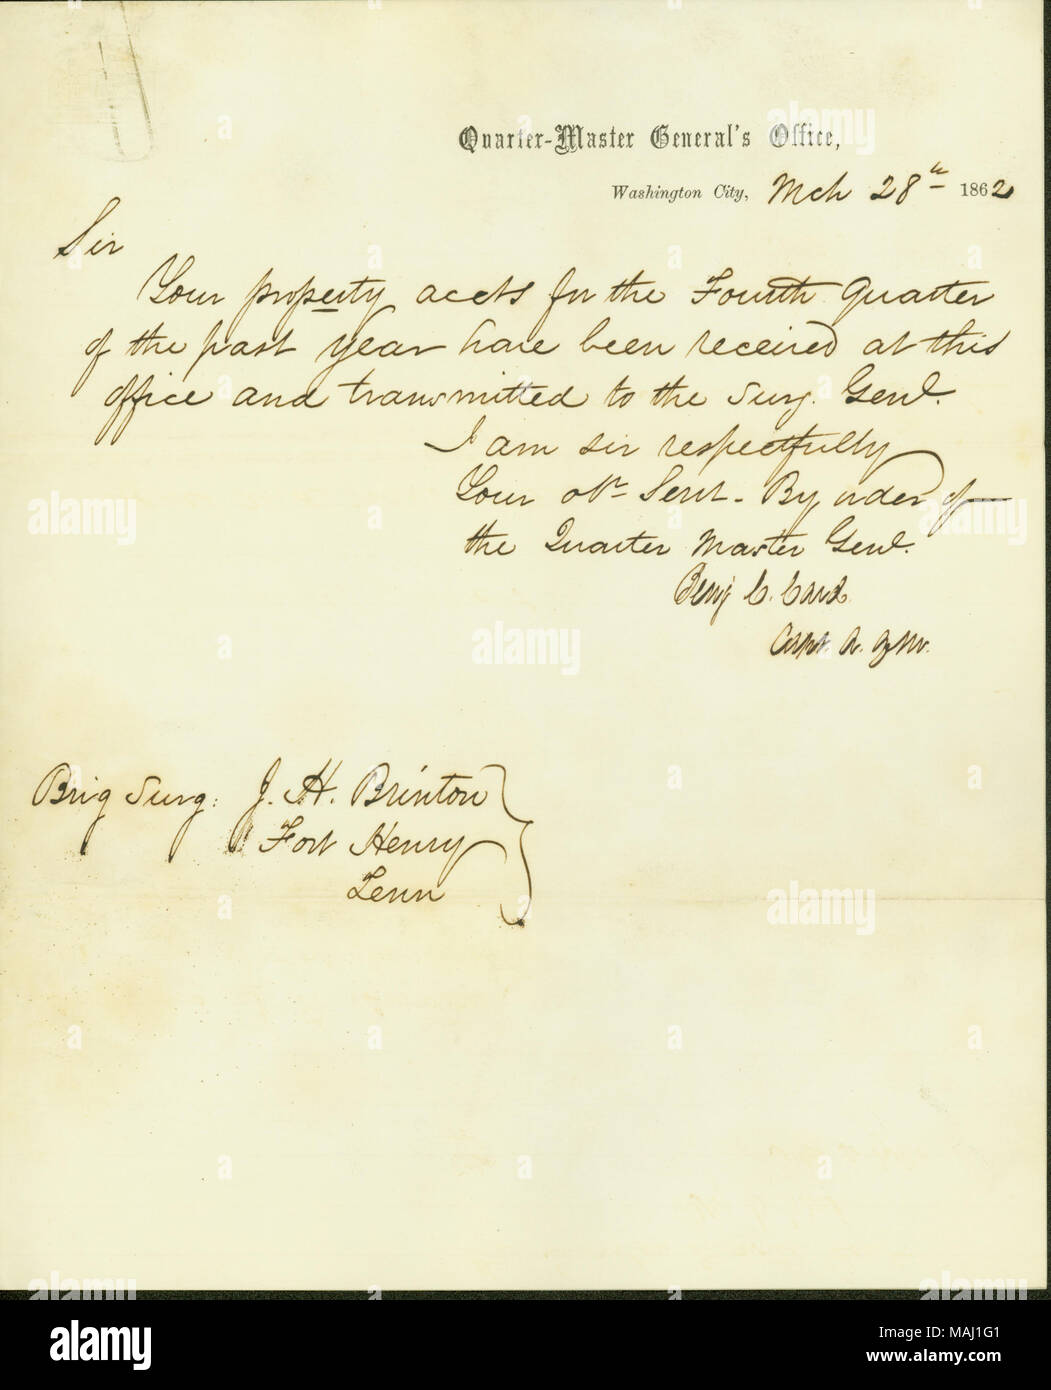 Quarter-Master General's Office,
Washington City, Mch 28th 1862
Sir
Your property accts for the Fourth Quarter
of the past year have been received at this
office and transmitted to the Surg. Genl.
I am sir respectfully
Your obt Servt - By order of
the Quarter Master Genl.
Benj C. Card
Capt. A. Q M.
Brig Surg: J. H. Brinton
Fort Henry
Tenn
alamy
Image ID: MAJ1G1
www.alamy.com